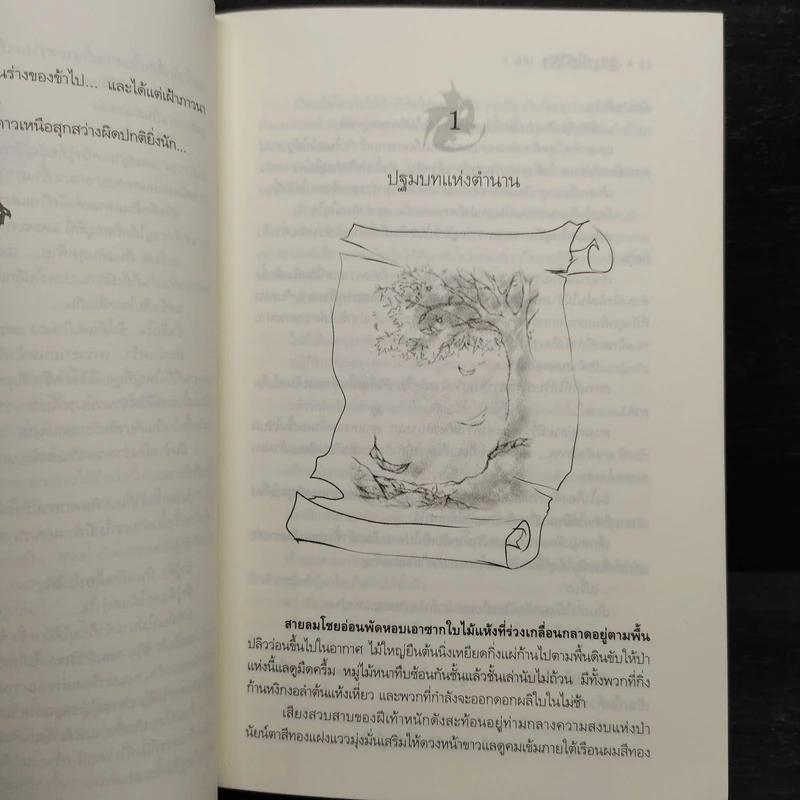 นร่างของข้าไป... และได้แต่เฝ้าภาวนา
ดาวเหนือสุกสว่างผิดปกติยิ่งนัก...
1
ปฐมบทแห่งตำนาน
สายลมโชยอ่อนพัดหอบเอาซากใบไม้แห้งที่ร่วงเกลื่อนกลาดอยู่ตามพื้น
ปลิวว่อนขึ้นไปในอากาศ ไม้ใหญ่ยืนต้นนิ่งเหยียดกิ่งแผ่ก้านไปตามพื้นดินขับให้ป่า
แห่งนี้แลดูมืดครึ้ม หมู่ไม้หนาทึบซ้อนกันชั้นแล้วชั้นเล่านับไม่ถ้วน มีทั้งพวกที่กิ่ง
ก้านหงิกงอลำต้นแห้งเหี่ยว และพวกที่กำลังจะออกดอกผลิใบในไม่ช้า
เสียงสวบสาบของฝีเท้าหนักดังสะท้อนอยู่ท่ามกลางความสงบแห่งป่า
นัยน์ตาสีทองแฝงแววมุ่งมั่นเสริมให้ดวงหน้าขาวแลดูคมเข้มภายใต้เรือนผมสีทอง